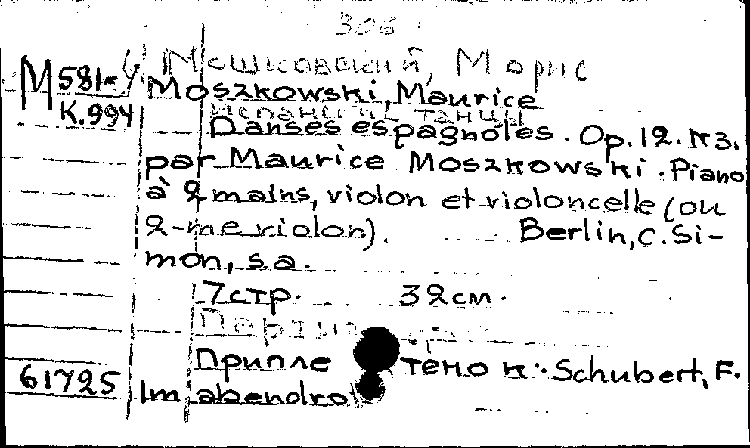 306
Мошковский, Морис
M 581-4
K.994
Moszkowski, Maurice
Испанские танцы
Danses espagnoles. Op.12. N3.
par Maurice Moszkowski. Piano
à 2 mains, violon et violoncelle (ou
2-me violon). Berlin, C. Si-
mon, s.a.
7 стр. 32 см.
Припле тено к: Schubert, F.
61725 Im abendro